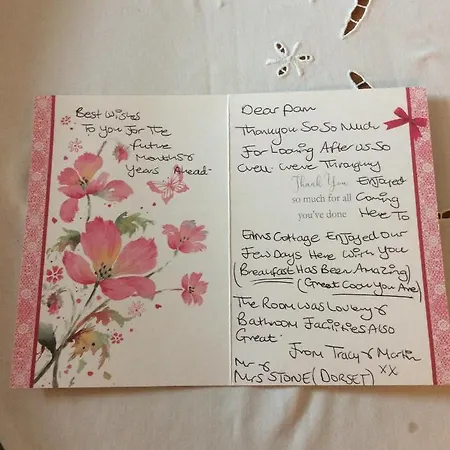 Best Wishes
To you For The
future
Months &
Years Ahead-
Dear Pam
Thankyou So So Much
For Looking After us So
Well. We've Throughly
Thank You
Enjoyed
so much for all
Coming
you've done
Here To
Enns Cottage Enjoyed Our
Few Days Here With You
(Breakfast Has Been Amazing)
(Great Cook You Are)
The Room Was Lovely &
Bathroom Facilities Also
Great.
From Tracy & Martin
Mr &
xx
Mrs STONE (DORSET)